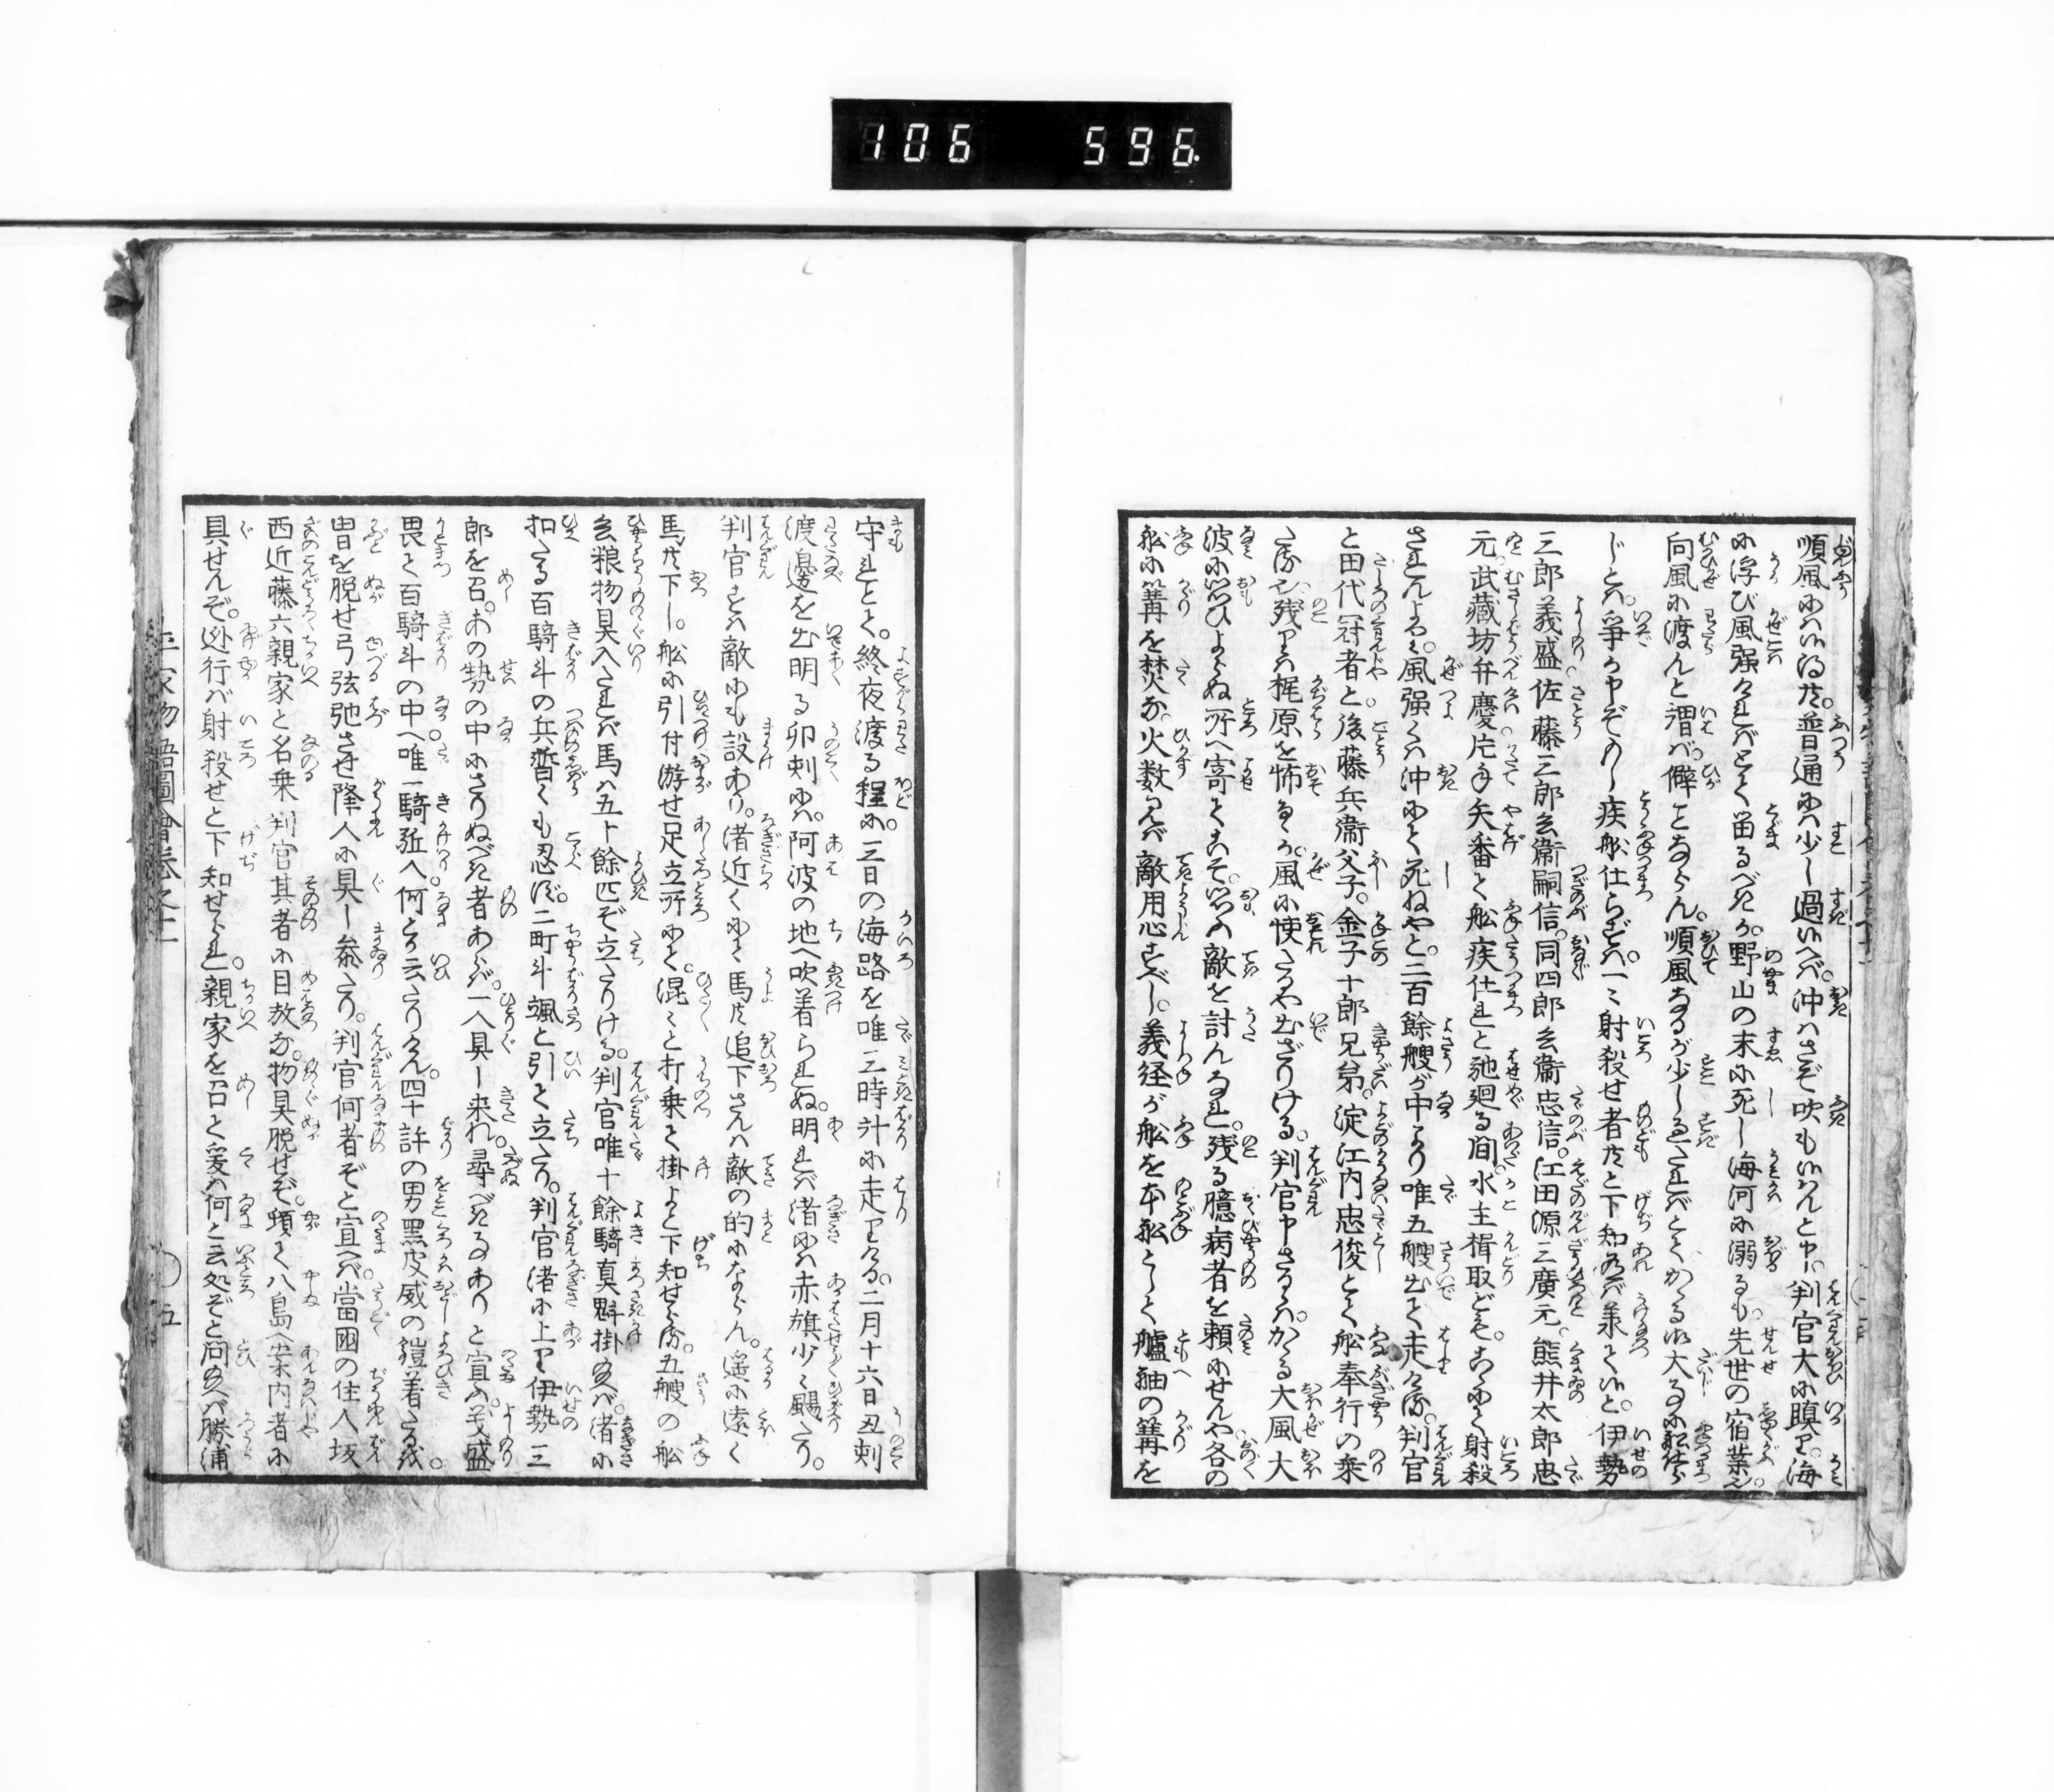 106 596
順風にハ候得共。普通にハ少し過候へバ。沖ハさぞ吹も候ハんと申。判官大に瞋り。海
に浮び風强ければとて留るべきか。野山の末に死し海河に溺るも。先世の宿業也。
向風に渡んと謂バ。僻ことならん。順風なるが少し過たればとて。かゝる御大事に船仕ら
じとハ。爭か申ぞのし疾船仕らずハ。一々射殺せ者共と下知あれバ承て候と。伊勢
三郎義盛佐藤三郎兵衞嗣信。同四郎兵衞忠信。江田源三廣元。熊井太郎忠
元。武藏坊弁慶片手矢番て船疾仕れと馳廻る間。水主揖取ども。こゝにて射殺
されんよるハ。風强くハ沖にて死ねやと。二百餘艘が中より唯五艘出て走ける。判官
と田代冠者と後藤兵衞父子。金子十郎兄弟。淀江内忠俊とて船奉行の乗
たる也。残りハ梶原を怖るゝか。風に悚るゝや出ざりける。判官申さるゝハ。かゝる大風大
波に思ひよらぬ所へ寄てこそ。思ふ敵を討んなれ。残る臆病者を頼にせんや各の
船に篝を焚な。火数みへば敵用心すべし。義経が船を本船として艫舳の篝を
守れとて。終夜渡る程に。三日の海路を唯三時計に走りける。二月十六日丑剋
渡邊を出明る卯刺にハ。阿波の地へ吹着られぬ。明れバ渚にハ赤旗少々颺たり。
判官すハ敵にも設あり。渚近くにて馬共追下さんハ敵の的にならん。遥に遠く
馬共下し。船に引付游せ足立所にて。混々と打乗て掛よと下知せらる。五艘の船
兵粮物具入たれば馬ハ五十餘匹ぞ立たりける。判官唯十餘騎真魁掛給へバ。渚に
扣たる百騎斗の兵暫くも忍ず。二町斗颯と引て立たり。判官渚に上り伊勢三
郎を召。あの勢の中にさりぬべき者あらバ。一人具し来れ。尋べき事ありと宣ふ。義盛
畏て百騎斗の中へ唯一騎駈入何とか云たりけん。四十許の男黒皮威の鎧着たるを。
冑を脱せ弓弦弛させ降人に具し參たり。判官何者ぞと宣へバ。當國の住人坂
西近藤六親家と名乗判官其者に目放な。物具脱せぞ。頓て八島へ案内者に
具せんぞ。迯行バ射殺せと下知せられ。親家を召て爰ハ何と云処ぞと問給へバ勝浦
五